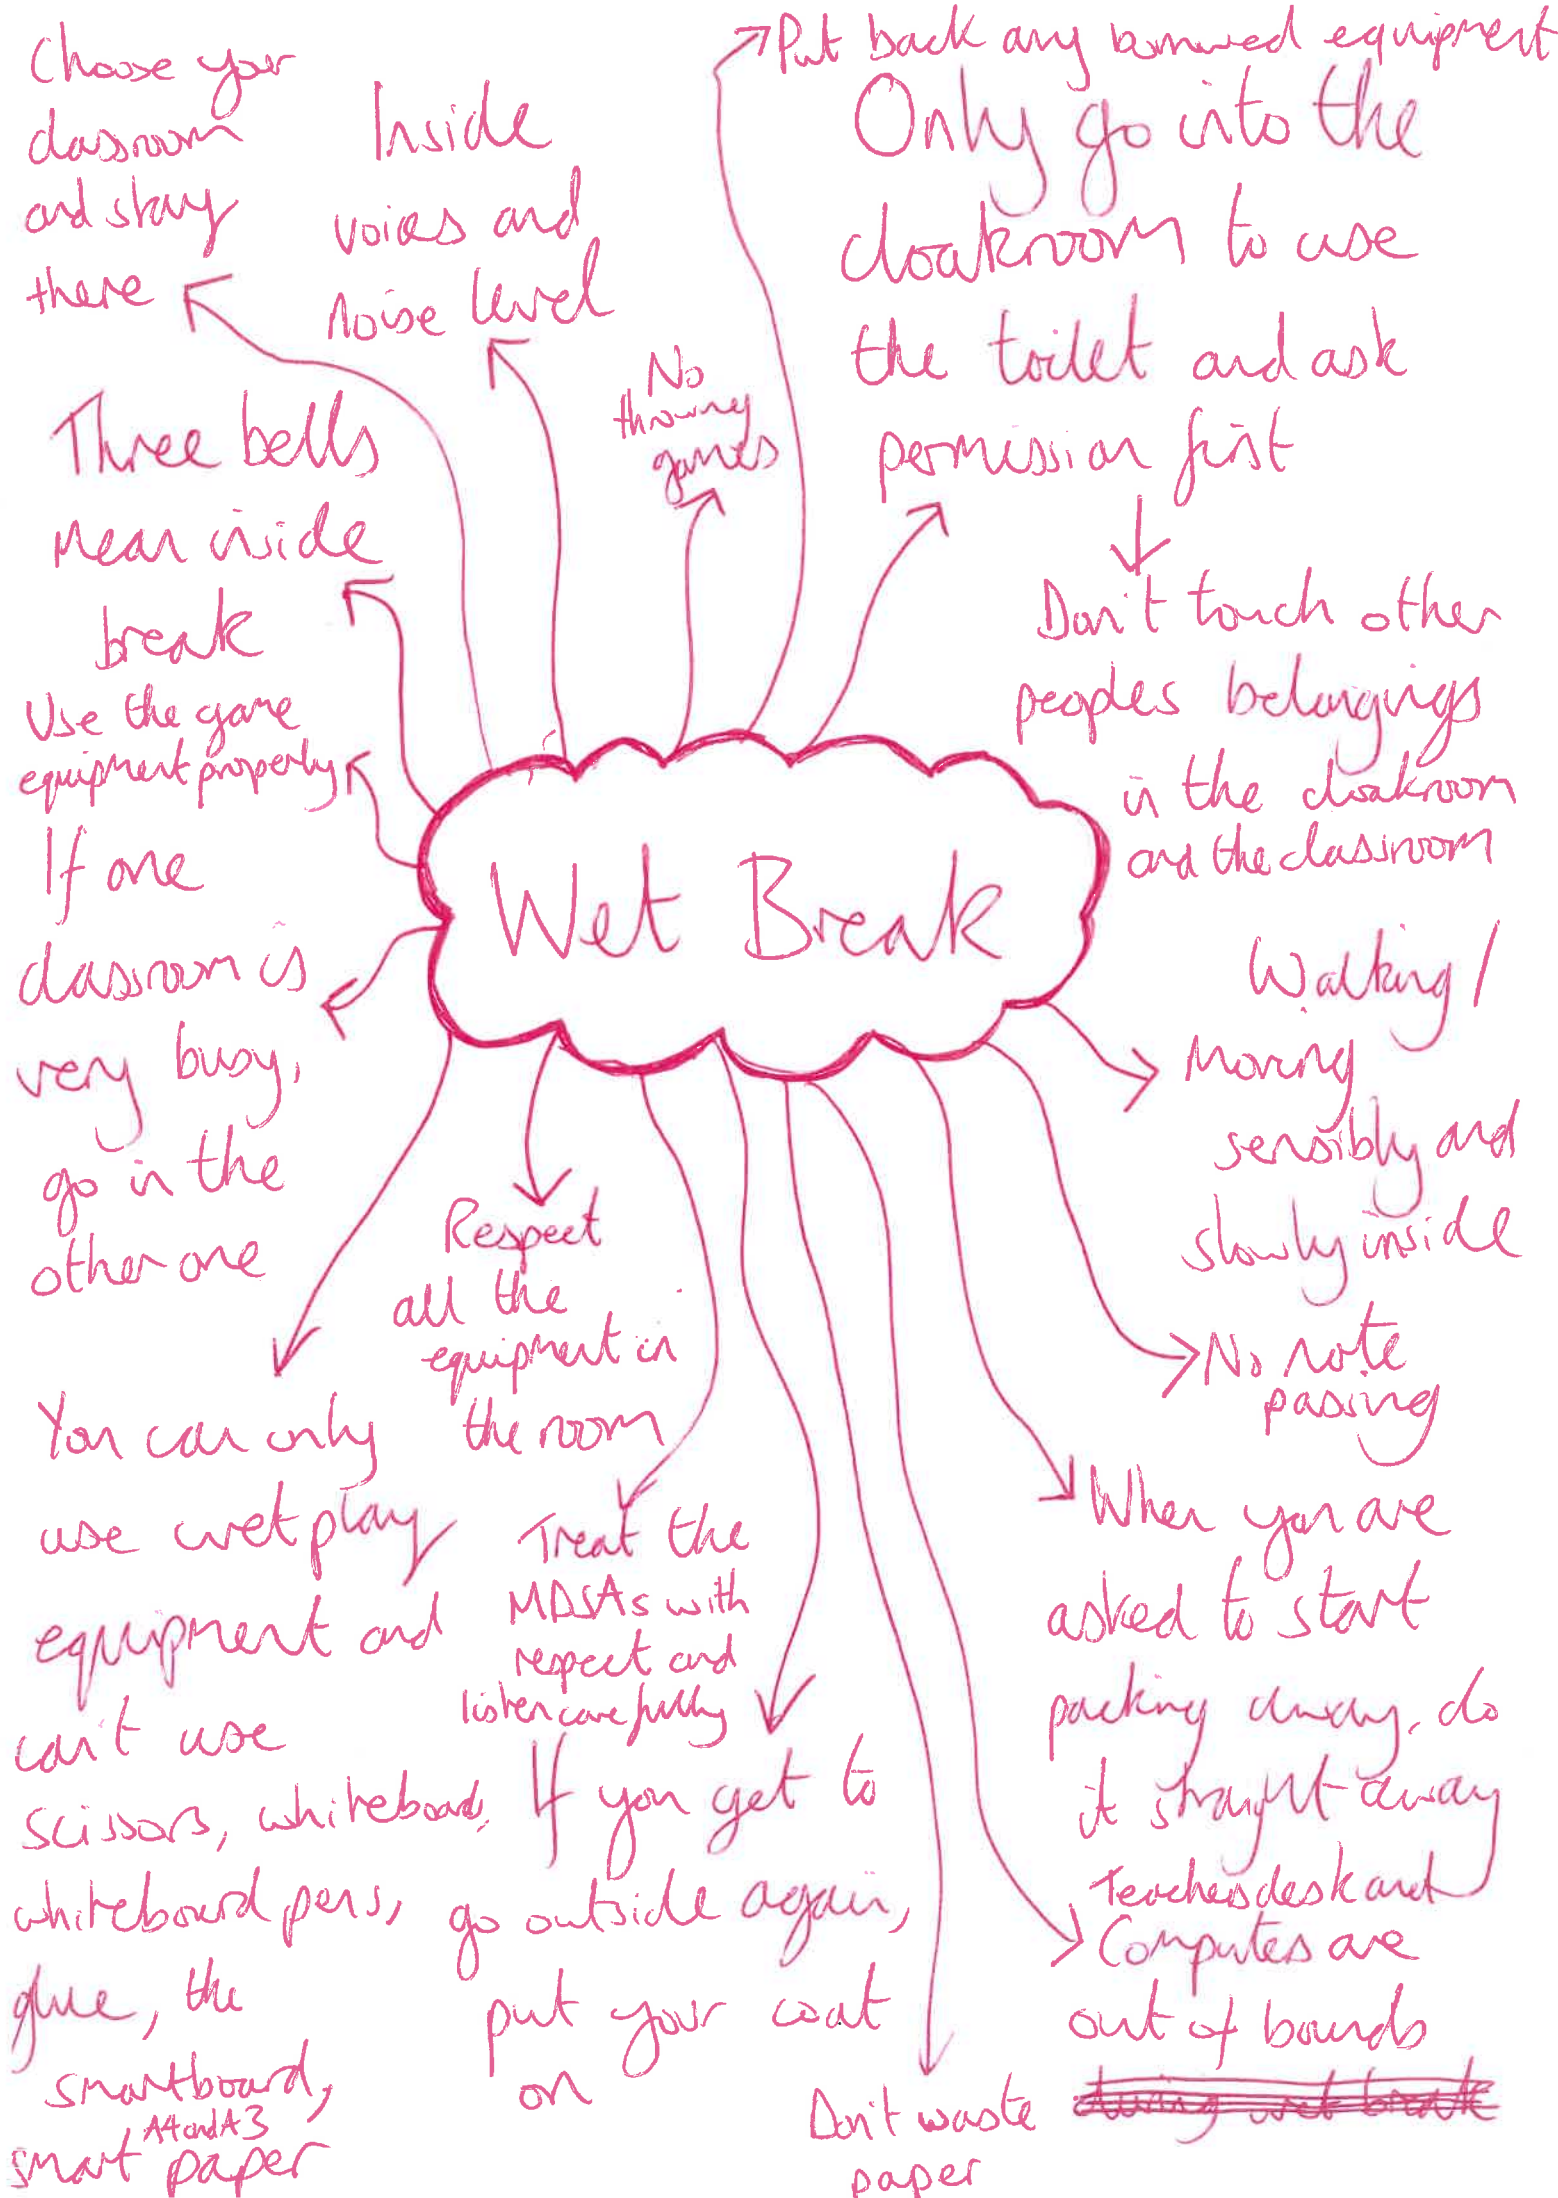 Choose your
classroom
and stay
there
Inside
voices and
noise level
No
throwing
games
Put back any borrowed equipment
Only go into the
cloakroom to use
the toilet and ask
permission first
Don't touch other
peoples belongings
in the cloakroom
and the classroom
Three bells
mean inside
break
Use the game
equipment properly
If one
classroom is
very busy,
go in the
other one
Wet Break
Walking /
moving
sensibly and
slowly inside
No note
passing
Respect
all the
equipment in
the room
You can only
use wet play
equipment and
can't use
scissors, whiteboards,
whiteboard pens,
glue, the
smartboard,
A4 and A3
smart paper
Treat the
MDSAs with
respect and
listen carefully
If you get to
go outside again,
put your coat
on
Don't waste
paper
When you are
asked to start
packing away, do
it straight away
Teachers desk and
Computers are
out of bounds
during wet break